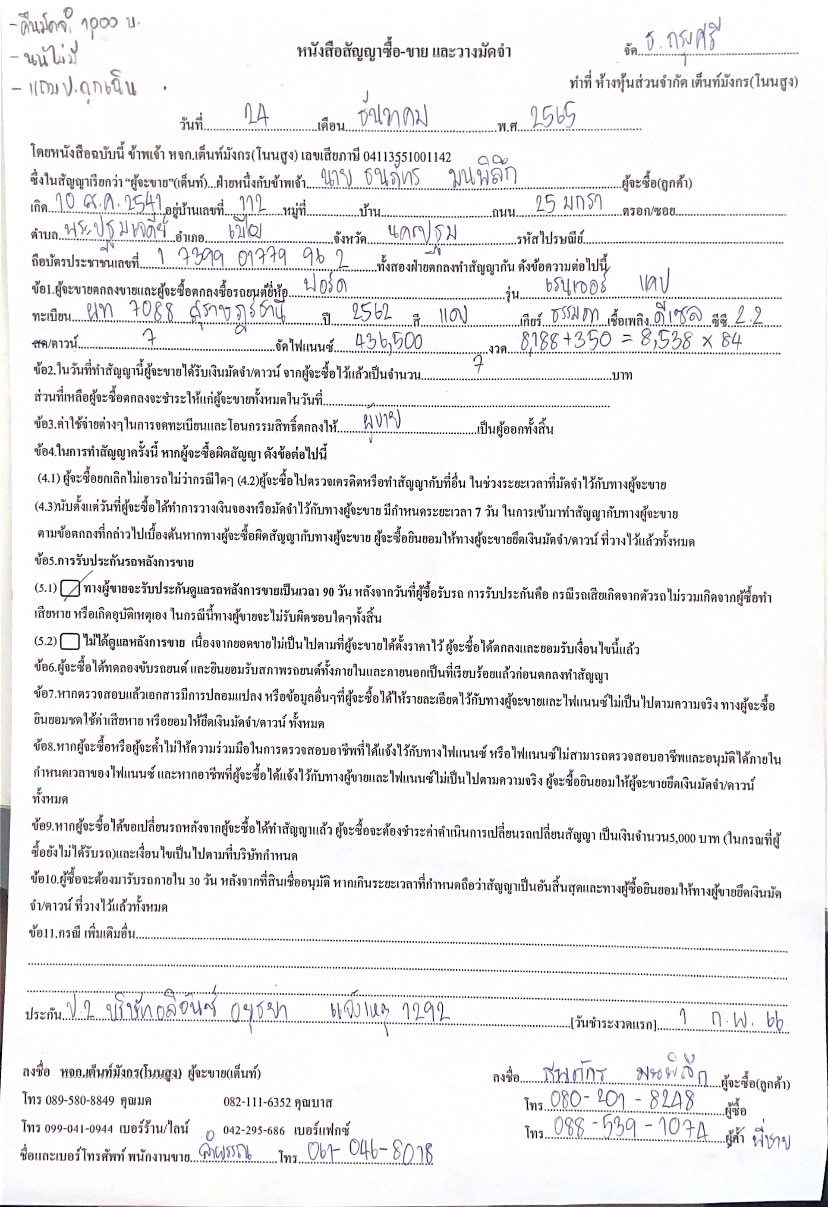 - คืนมัดจำ 1,000 บ.
- นน้ไม่มี
- แถมป.ฉุกเฉิน
หนังสือสัญญาซื้อ-ขาย และวางมัดจำ
จัด ธ.กรุงศรี
ทำที่ ห้างหุ้นส่วนจำกัด เต็นท์มังกร(โนนสูง)
วันที่ 24 เดือน ธันวาคม พ.ศ 2565
โดยหนังสือฉบับนี้ ข้าพเจ้า หจก.เต็นท์มังกร(โนนสูง) เลขเสียภาษี 04113551001142
ซึ่งในสัญญาเรียกว่า "ผู้จะขาย"(เต็นท์)...ฝ่ายหนึ่งกับข้าพเจ้า นาย ธนภัทร มนพิลึก ผู้จะซื้อ(ลูกค้า)
เกิด 10 ส.ค. 2541 อยู่บ้านเลขที่ 112 หมู่ที่ บ้าน ถนน 25 มกรา ตรอก/ซอย
ตำบล พระปฐมเจดีย์ อำเภอ เมือง จังหวัด นครปฐม รหัสไปรษณีย์
ถือบัตรประชาชนเลขที่ 1 7399 01779 96 2 ทั้งสองฝ่ายตกลงทำสัญญากัน ดังข้อความต่อไปนี้
ข้อ1.ผู้จะขายตกลงขายและผู้จะซื้อตกลงซื้อรถยนต์ยี่ห้อ ฟอร์ด รุ่น เรนเจอร์ แคป
ทะเบียน ผท 7088 สุราษฎร์ธานี ปี 2562 สี แดง เกียร์ ธรรมดา เชื้อเพลิง ดีเซล ซีซี 2.2
สด/ดาวน์ 7 จัดไฟแนนซ์ 436,500 งวด 8,188+350 = 8,538 x 84
ข้อ2.ในวันที่ทำสัญญานี้ผู้จะขายได้รับเงินมัดจำ/ดาวน์ จากผู้จะซื้อไว้แล้วเป็นจำนวน 7 บาท
ส่วนที่เหลือผู้จะซื้อตกลงจะชำระให้แก่ผู้จะขายทั้งหมดในวันที่
ข้อ3.ค่าใช้จ่ายต่างๆในการจดทะเบียนและโอนกรรมสิทธิ์ตกลงให้ ผู้ขาย เป็นผู้ออกทั้งสิ้น
ข้อ4.ในการทำสัญญาครั้งนี้ หากผู้จะซื้อผิดสัญญา ดังข้อต่อไปนี้
(4.1) ผู้จะซื้อยกเลิกไม่เอารถไม่ว่ากรณีใดๆ (4.2)ผู้จะซื้อไปตรวจเครดิตหรือทำสัญญากับที่อื่น ในช่วงระยะเวลาที่มัดจำไว้กับทางผู้จะขาย
(4.3)นับตั้งแต่วันที่ผู้จะซื้อได้ทำการวางเงินจองหรือมัดจำไว้กับทางผู้จะขาย มีกำหนดระยะเวลา 7 วัน ในการเข้ามาทำสัญญากับทางผู้จะขาย
ตามข้อตกลงที่กล่าวไปเบื้องต้นหากทางผู้จะซื้อผิดสัญญากับทางผู้จะขาย ผู้จะซื้อยินยอมให้ทางผู้จะขายยึดเงินมัดจำ/ดาวน์ ที่วางไว้แล้วทั้งหมด
ข้อ5.การรับประกันรถหลังการขาย
(5.1) ทางผู้ขายจะรับประกันดูแลรถหลังการขายเป็นเวลา 90 วัน หลังจากวันที่ผู้ซื้อรับรถ การรับประกันคือ กรณีรถเสียเกิดจากตัวรถไม่รวมเกิดจากผู้ซื้อทำ
เสียหาย หรือเกิดอุบัติเหตุเอง ในกรณีนี้ทางผู้ขายจะไม่รับผิดชอบใดๆทั้งสิ้น
(5.2) ไม่ได้ดูแลหลังการขาย เนื่องจากยอดขายไม่เป็นไปตามที่ผู้จะขายได้ตั้งราคาไว้ ผู้จะซื้อได้ตกลงและยอมรับเงื่อนไขนี้แล้ว
ข้อ6.ผู้จะซื้อได้ทดลองขับรถยนต์ และยินยอมรับสภาพรถยนต์ทั้งภายในและภายนอกเป็นที่เรียบร้อยแล้วก่อนตกลงทำสัญญา
ข้อ7.หากตรวจสอบแล้วเอกสารมีการปลอมแปลง หรือข้อมูลอื่นๆที่ผู้จะซื้อได้ให้รายละเอียดไว้กับทางผู้จะขายและไฟแนนซ์ไม่เป็นไปตามความจริง ทางผู้จะซื้อ
ยินยอมชดใช้ค่าเสียหาย หรือยอมให้ยึดเงินมัดจำ/ดาวน์ ทั้งหมด
ข้อ8.หากผู้จะซื้อหรือผู้จะค้ำไม่ให้ความร่วมมือในการตรวจสอบอาชีพที่ได้แจ้งไว้กับทางไฟแนนซ์ หรือไฟแนนซ์ไม่สามารถตรวจสอบอาชีพและอนุมัติได้ภายใน
กำหนดเวลาของไฟแนนซ์ และหากอาชีพที่ผู้จะซื้อได้แจ้งไว้กับทางผู้ขายและไฟแนนซ์ไม่เป็นไปตามความจริง ผู้จะซื้อยินยอมให้ผู้จะขายยึดเงินมัดจำ/ดาวน์
ทั้งหมด
ข้อ9.หากผู้จะซื้อได้ขอเปลี่ยนรถหลังจากผู้จะซื้อได้ทำสัญญาแล้ว ผู้จะซื้อจะต้องชำระค่าดำเนินการเปลี่ยนรถเปลี่ยนสัญญา เป็นเงินจำนวน5,000 บาท (ในกรณที่ผู้
ซื้อยังไม่ได้รับรถ)และเงื่อนไขเป็นไปตามที่บริษัทกำหนด
ข้อ10.ผู้ซื้อจะต้องมารับรถภายใน 30 วัน หลังจากที่สินเชื่ออนุมัติ หากเกินระยะเวลาที่กำหนดถือว่าสัญญาเป็นอันสิ้นสุดและทางผู้ซื้อยินยอมให้ทางผู้ขายยึดเงินมัด
จำ/ดาวน์ ที่วางไว้แล้วทั้งหมด
ข้อ11.กรณี เพิ่มเติมอื่น
ประกัน ป.2 บริษัทอลิอันซ์ อยุธยา แจ้งเหตุ 1292 [วันชำระงวดแรก] 1 ก.พ. 66
ลงชื่อ หจก.เต็นท์มังกร(โนนสูง) ผู้จะขาย(เต็นท์)
ลงชื่อ ธนภัทร มนพิลึก ผู้จะซื้อ(ลูกค้า)
โทร 089-580-8849 คุณมด 082-111-6352 คุณบาส
โทร 080-201-8248 ผู้ซื้อ
โทร 099-041-0944 เบอร์ร้าน/ไลน์ 042-295-686 เบอร์แฟกซ์
โทร 088-539-1074 ผู้ค้ำ พี่ชาย
ชื่อและเบอร์โทรศัพท์ พนักงานขาย ลำพรรณ โทร 061-046-8018